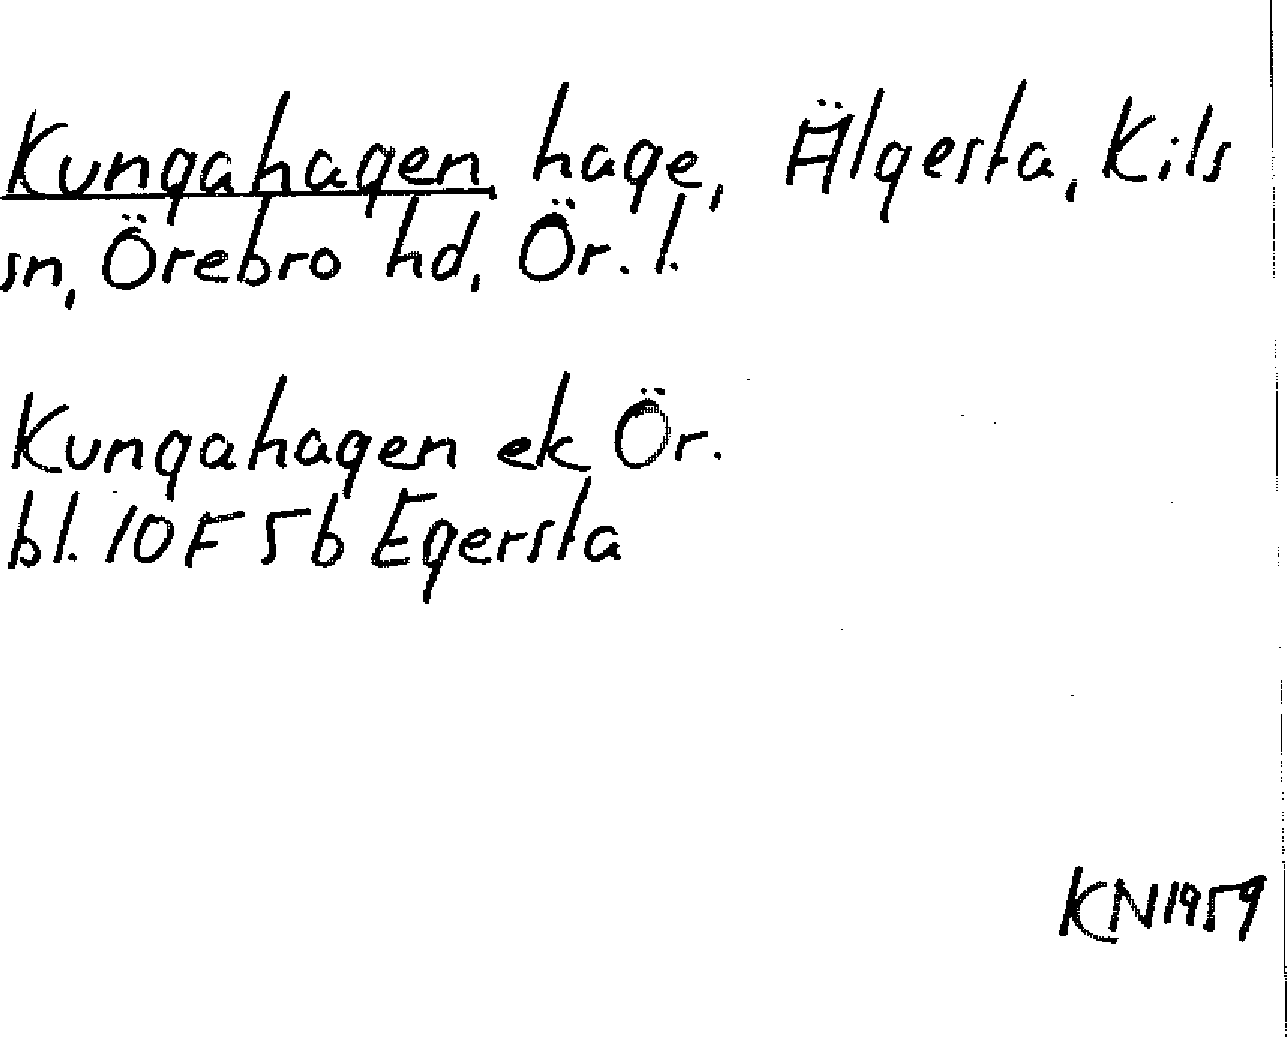 Kungahagen, hage, Älgesta, Kils
sn, Örebro hd, Ör. l.
Kungahagen ek Ör.
bl. 10F 5b Egersta
KN1959